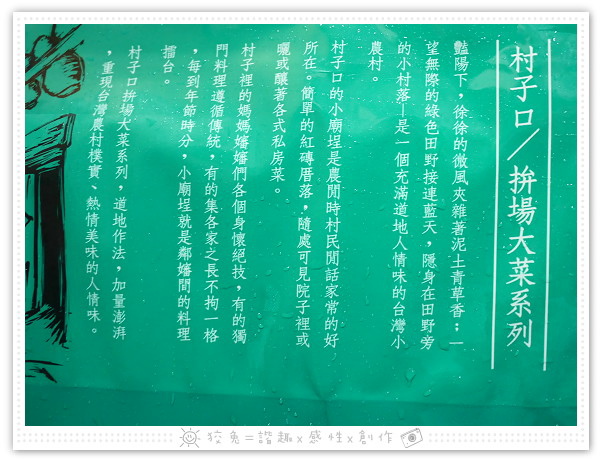 村子口／拚場大菜系列
豔陽下，徐徐的微風夾雜著泥土青草香；一
望無際的綠色田野接連藍天，隱身在田野旁
的小村落—是一個充滿道地人情味的台灣小
農村。
村子口的小廟埕是農閒時村民閒話家常的好
所在。簡單的紅磚厝落，隨處可見院子裡或
曬或釀著各式私房菜。
村子裡的媽媽嬸嬸們各個身懷絕技，有的獨
門料理遵循傳統，有的集各家之長不拘一格
，每到年節時分，小廟埕就是鄰嬸間的料理
擂台。
村子口拚場大菜系列，道地作法，加量澎湃
，重現台灣農村樸實、熱情美味的人情味。
狡兔=諧趣x感性x創作